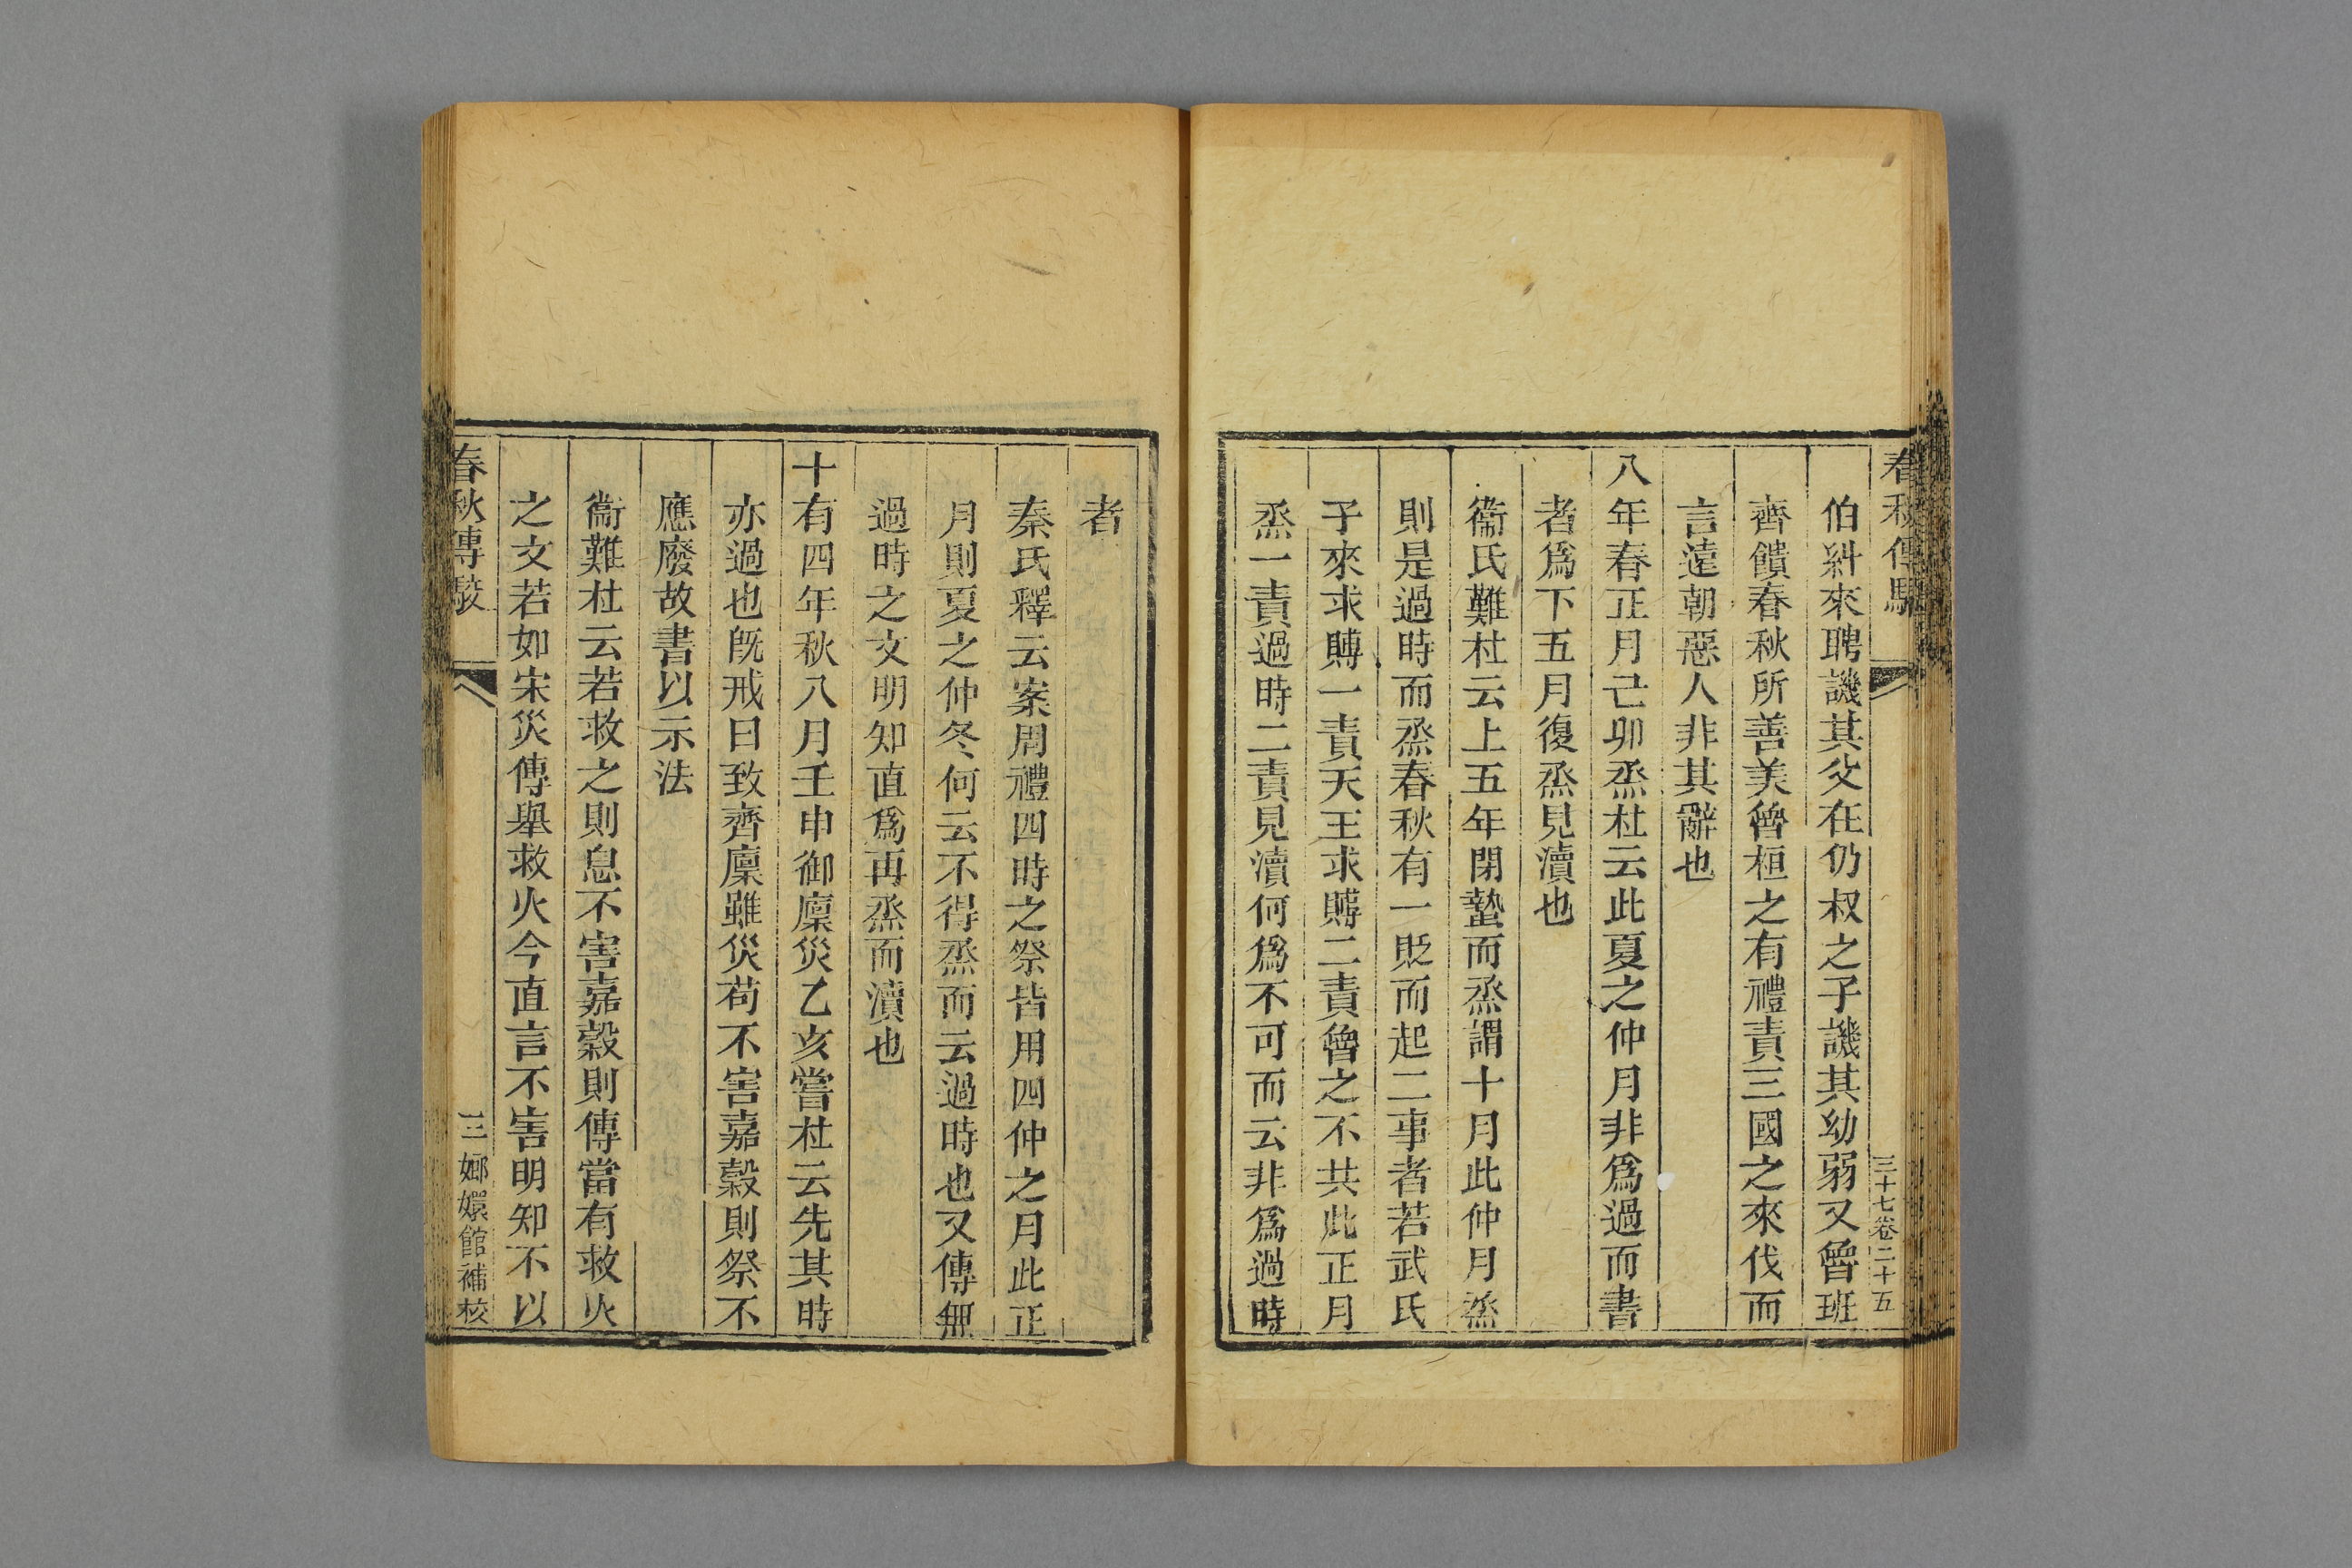 春秋傳駮
三十七卷二十五
伯糾來聘譏其父在仍叔之子譏其幼弱又魯班
齊饋春秋所善美魯桓之有禮責三國之來伐而
言遠朝惡人非其辭也
八年春正月己卯烝杜云此夏之仲月非爲過而書
者爲下五月復烝見瀆也
衞氏難杜云上五年閉蟄而烝謂十月此仲月烝
則是過時而烝春秋有一貶而起二事者若武氏
子來求賻一責天王求賻二責魯之不共此正月
烝一責過時二責見瀆何爲不可而云非爲過時
者
秦氏釋云案周禮四時之祭皆用四仲之月此正
月則夏之仲冬何云不得烝而云過時也又傳無
過時之文明知直爲再烝而瀆也
十有四年秋八月壬申御廩災乙亥嘗杜云先其時
亦過也旣戒日致齊廩雖災苟不害嘉穀則祭不
應廢故書以示法
衞難杜云若救之則息不害嘉穀則傳當有救火
之文若如宋災傳舉救火今直言不害明知不以
春秋傳駮
三
嫏嬛館補校